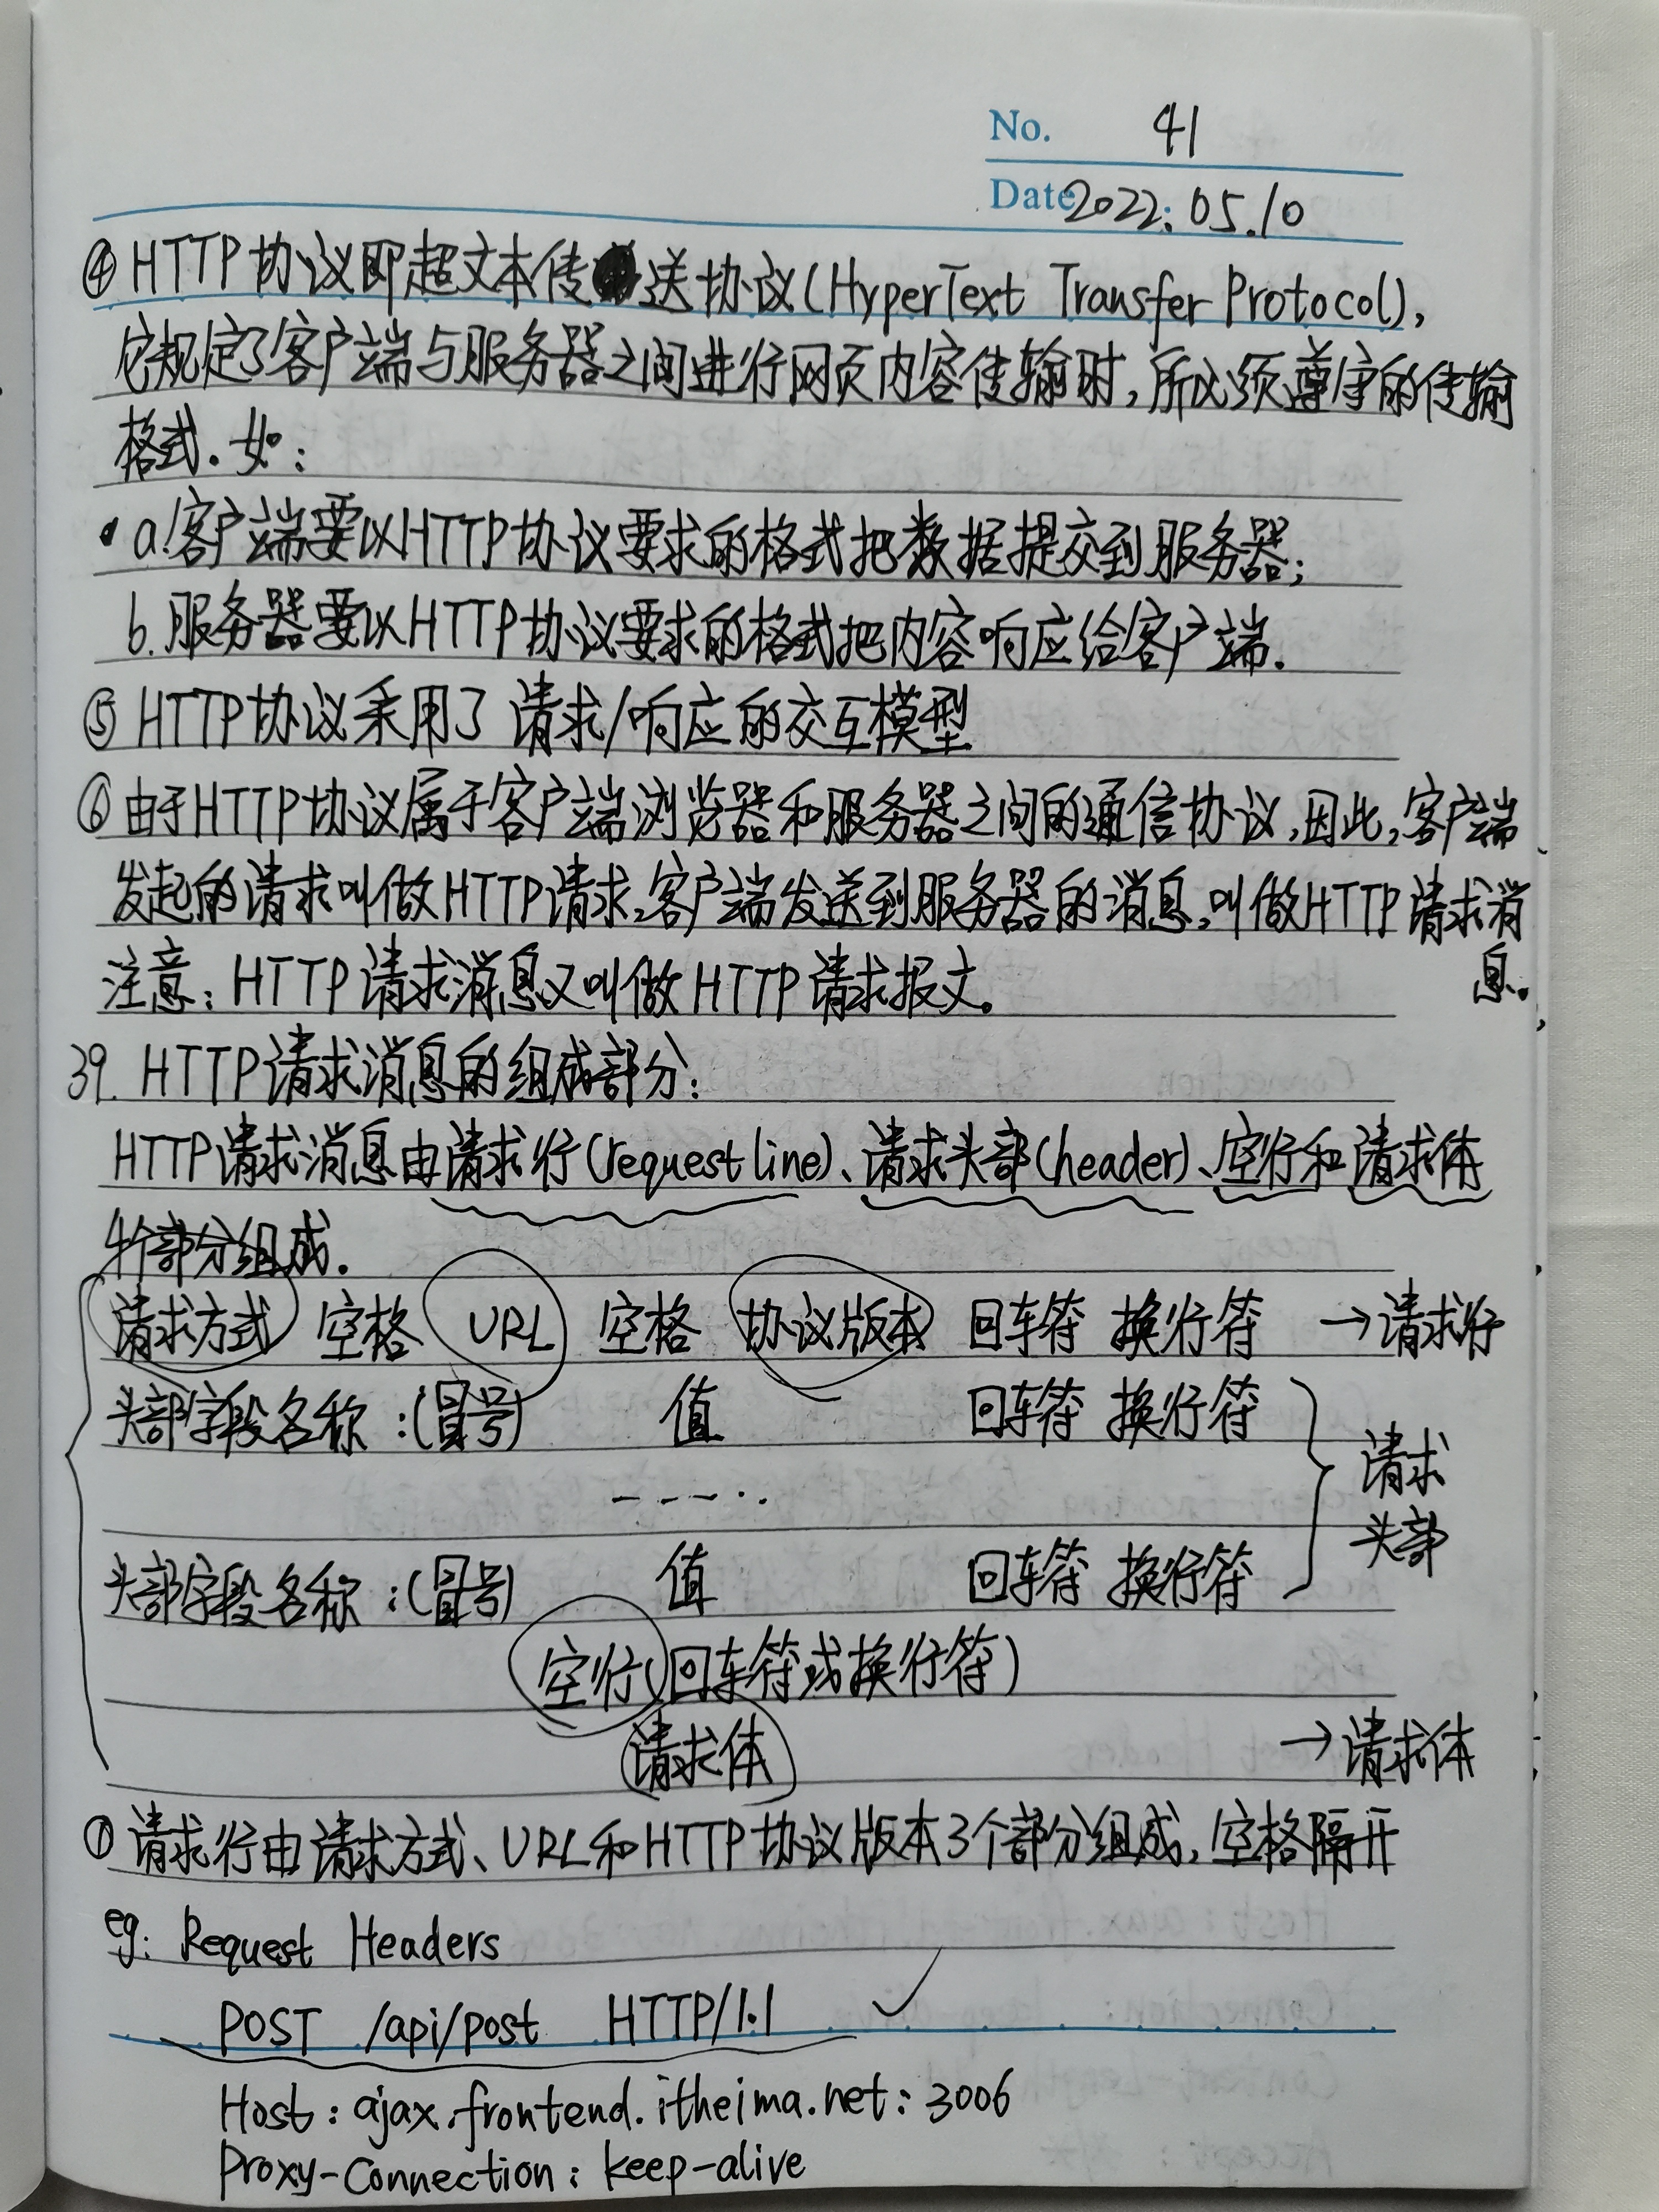 No. 41
Date 2022.05.10
④ HTTP协议即超文本传送协议(HyperText Transfer Protocol),
它规定了客户端与服务器之间进行网页内容传输时,所必须遵守的传输
格式.如:
a.客户端要以HTTP协议要求的格式把数据提交到服务器;
b.服务器要以HTTP协议要求的格式把内容响应给客户端.
⑤ HTTP协议采用了 请求/响应的交互模型
⑥ 由于HTTP协议属于客户端浏览器和服务器之间的通信协议,因此,客户端
发起的请求叫做HTTP请求,客户端发送到服务器的消息,叫做HTTP请求消
息。
注意:HTTP请求消息又叫做HTTP请求报文。
39. HTTP请求消息的组成部分:
HTTP请求消息由请求行(request line)、请求头部(header)、空行和请求体
4个部分组成.
请求方式 空格 URL 空格 协议版本 回车符 换行符 →请求行
头部字段名称 :(冒号) 值 回车符 换行符
-----..
请求
头部
头部字段名称 :(冒号) 值 回车符 换行符
空行(回车符或换行符)
请求体 →请求体
① 请求行由请求方式、URL和HTTP协议版本3个部分组成,空格隔开
eg: Request Headers
POST /api/post HTTP/1.1 ✓
Host: ajax.frontend.itheima.net:3006
Proxy-Connection: keep-alive